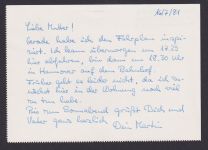 16/7/81
Liebe Mutter!
Gerade habe ich den Fahrplan inspi-
ziert. Ich kann übermorgen um 17.23
hier abfahren, bin dann um 18.30 Uhr
in Hannover auf dem Bahnhof.
Früher geht es leider nicht, da ich
hier in der Wohnung noch viel
zu tun habe.
Bis zum Sonnabend grüßt Dich und
Vater ganz herzlich
Dein Martin